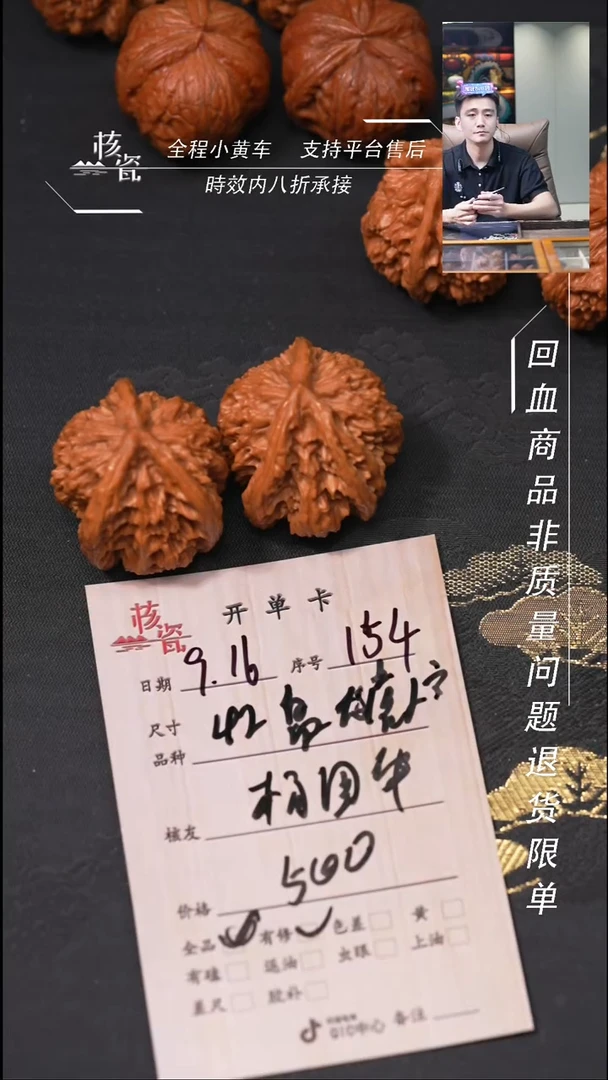 核瓷
全程小黄车 支持平台售后
時效内八折承接
回血商品非质量问题退货限单
核瓷 开单卡
日期 9.16 序号 154
尺寸
品种 42
核友
价格 500
全品 有修 色差 黄
有磕 返油 虫眼 上油
差尺 胶补
QIC中心 备注